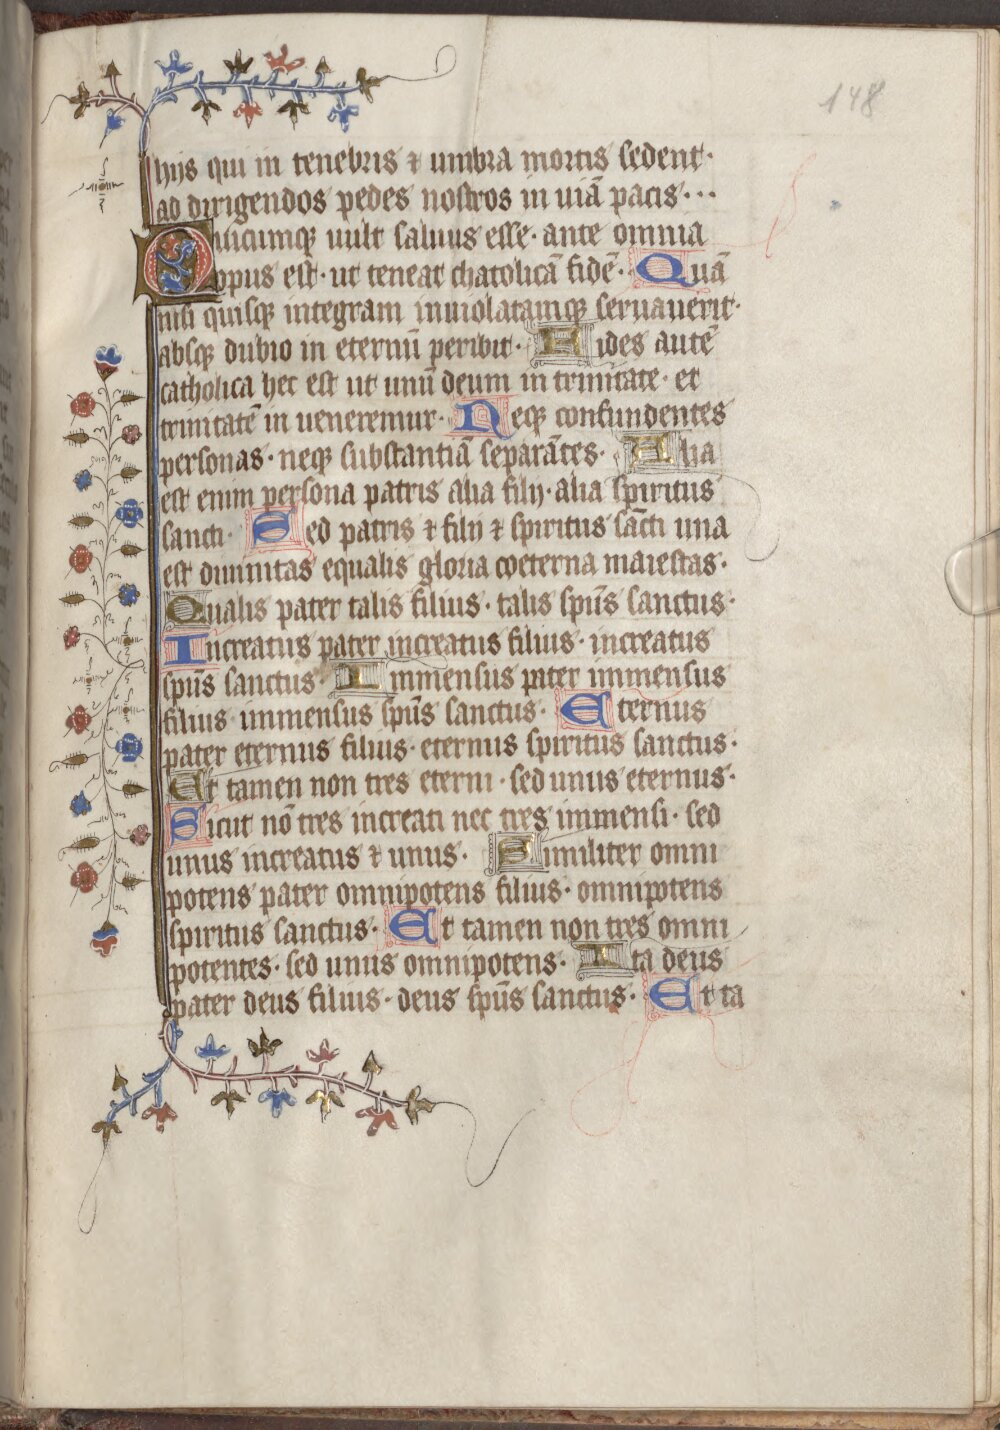 148
hijs qui in tenebris ⁊ umbra mortis sedent·
ad dirigendos pedes nostros in uiā pacis···
Quicumqꝫ uult saluus esse· ante omnia
opus est· ut teneat chatolicā fidē· Quā
nisi quisqꝫ integram inuiolatamqꝫ seruauerit·
absqꝫ dubio in eternū peribit· Fides autē
catholica hec est ut unū deum in trinitate· et
trinitatē in ueneremur· Neqꝫ confundentes
personas· neqꝫ substantiā separātes· Alia
est enim persona patris alia filij· alia spiritus
sancti· Sed patris ⁊ filij ⁊ spiritus sācti una
est diuinitas equalis gloria coeterna maiestas·
Qualis pater talis filius· talis spūs sanctus·
Increatus pater increatus filius· increatus
spūs sanctus· Immensus pater immensus
filius immensus spūs sanctus· Eternus
pater eternus filius· eternus spiritus sanctus·
Et tamen non tres eterni· sed unus eternus·
Sicut nō tres increati nec tres immensi· sed
unus increatus ⁊ unus· Similiter omni
potens pater omnipotens filius· omnipotens
spiritus sanctus· Et tamen non tres omni
potentes· sed unus omnipotens· Ita deus
pater deus filius· deus spūs sanctus· Et ta